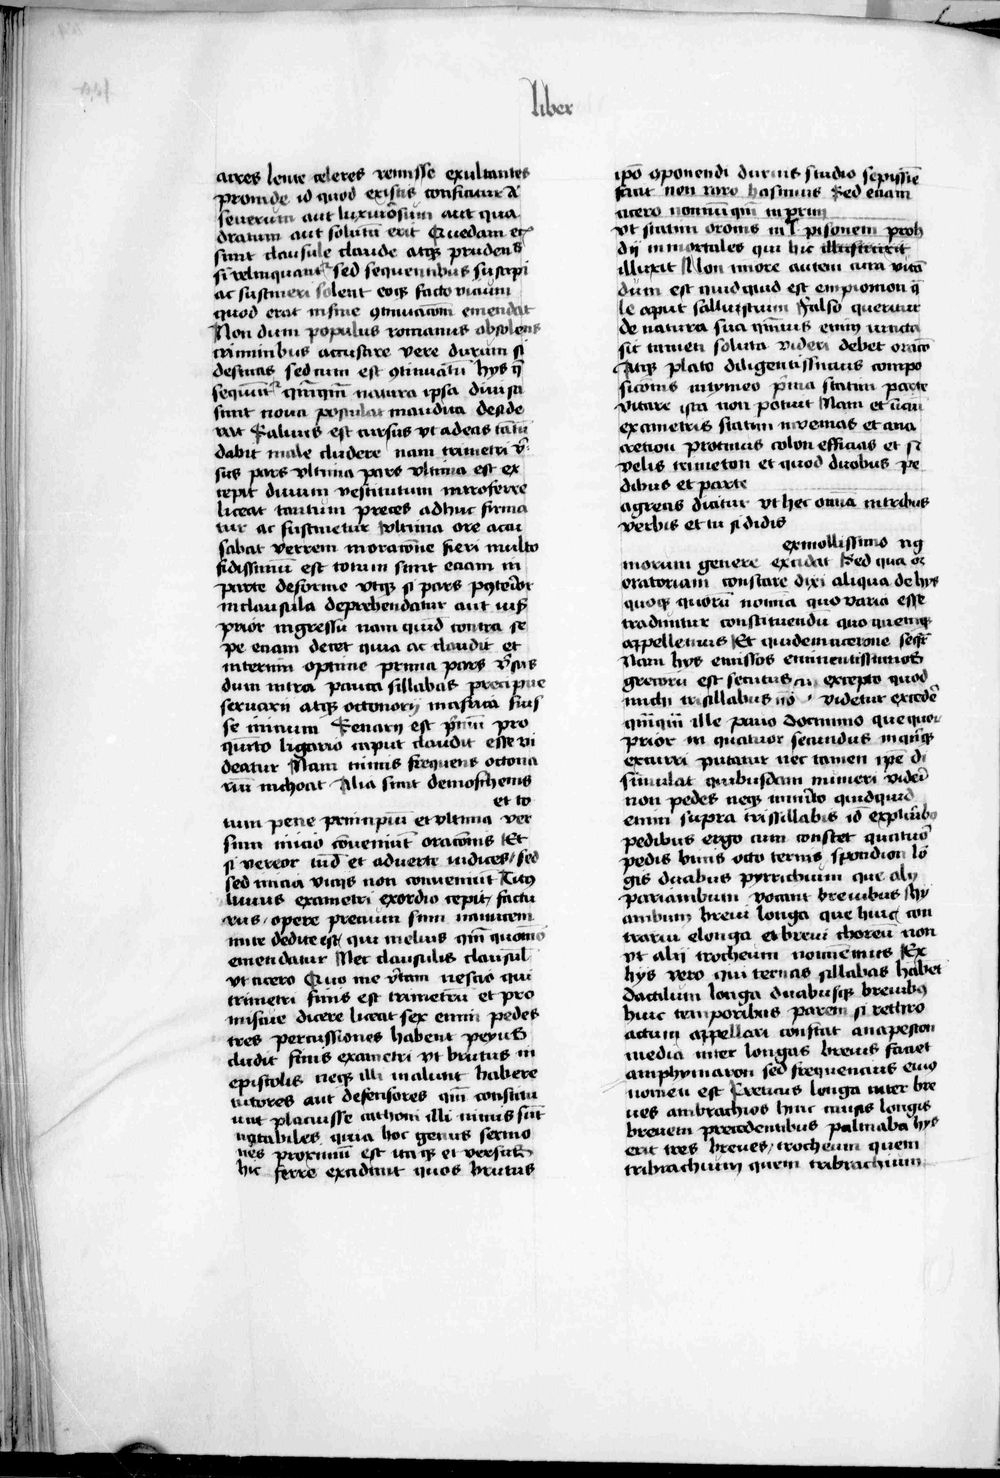 liber
acres lente celeres remisse exultantes
proinde id quod exijs conficitur a
severum aut luxuriosum aut qua
dratum aut solutū erit Quedam eē
sunt clausule claude atqꝫ prudens
si relinquantᷣ sed sequentibus suscipi
ac sustineri solent eoqꝫ facto vicium
quod erat in fine ꝯtinuacōm emendat
Non dum populus romanus obsolens
criminibus accusare vere durum si
desinas sed cum est ꝯtinuatū hys q̄
sequūtᷣ qm̄qm̄ natura ipsa divisa
sunt nova postulat inaudita deside
rat Saluus est cursus vt adeas tātū
dabit male cludere nam trimetri v̄
sus pars vltima pars vltima est ex
cepit divum vestitutum introferre
liceat tantum preces adhuc firma
tur ac sustinetur vltima ore accu
sabat verrem in oracōne fieri multo
fedissimū est totum sicut etiam in
parte deforme vtiqꝫ si pars posterior
in clausula deprehendatur aut vsꝰ
prior ingressu nam quid contra se
pe etiam decet quia ac claudit et
interim optime prima pars v̄sus
dum intra pauca sillabas precipue
senarii atqꝫ octonorij in africa fuis
se inicium Senarij est p̄mū pro
quīto ligario caput claudit esse vi
deatur Nam nimis frequens octona
riū inchoat Alia sunt demosthenis
et to
tum pene principiū et vltima ver
sum inicio cōveniūt oracōnis Et
si vereor iud et adverte iudices / sed
sed inicia vtiqs non conveniūt Titꝰ
liuius exametri exordio cepit / factu
rus / opere precium sim nanutem
mur dedite est / qui melius qm̄ quomō
emendatur Nec clausulis clausul
vt cicero Quo me v̄tam nescio qui
trimetri finis est trimetrū et pro
miscue dicere liceat sex enim pedes
tres percussiones habent peiꝰ
cludit finis exametri vt brutus in
epistolis neqꝫ illi malunt habere
tutores aut defensores qm̄ constitu
unt placuisse cathoni illi minus sūt
notabiles quia hoc genus sermo
nes proximū est itaqꝫ et versus
hic ferre excidunt quos brutus
ipō oponendi durius studio sepissie
facit non raro hasinius Sed etiam
cicero nonnūqm̄ in prīn
vt statim oronis in l pisonem proh
dij inmortales qui hic illustruxit
illuxit Non minore autem cura vitā
dum est quid quid est enpiomon q̄
le aput sallustium Falso queritur
de natura sua qm̄uis enim vincta
sit tamen soluta videri debet oracō
Atqꝫ plato diligentissimus compo
sicōnis in tymeo p̄ma statim parte
vitare ista non potuit Nam et inciū
exametris statim invenias et ana
cretion protinus colon efficias et si
velis trimeton et quod duobus pe
dibus et parte
agrecis dicitur vt hec omīa in tribus
verbis et tu sididis
ex mollissimo rig
morum genere excidat Sed qua or
oratoriam constare dixi aliqua de hys
quoqꝫ quorū nomīa quo varia esse
traduntur constituendū quo quemqꝫ
appellemus Et quidem cicerone seqr
Nam hys emissos eminentissimos
grecorū est secutus excepto quod
michi trisillabus nō videtur excedē
qm̄qm̄ ille pano docmimo que quor
prior in quatuor secundus in qūqꝫ
excurri putatur nec tamen ipē di
simulat quibusdam numeri videi
non pedes neqꝫ inmīto quidquid
enim supra trissillabis id explūbꝫ
pedibus ergo cum constet quatuor
pedis binis octo ternis spondion lō
gis duabus pyrrichium que alij
pariambum vocant brevibus Hy
ambum brevi longa que huic con
trariū e longa et brevi choreū non
vt alij trocheum nominemus Ex
hys vero qui ternas sillabas habet
dactilum longa duabusqꝫ brevibꝰ
huic temporibus parem si rettro
actum appellari constat anapeston
media inter longas brevis faciet
amphymacron sed frequencius eiꝰ
nomen est Creticus longa inter bre
ues ambrachios hinc amsis longis
brevem precedentibus palimba hys
erit tres breves / trocheum quem
tribrachium quem tribrachium